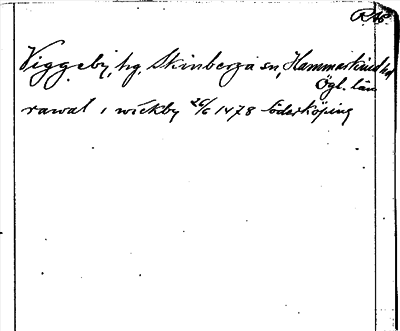 Viggeby, hg, Skönberga sn, Hammarkind hd
Ögl. län
rawal i wickby 26/6 1478 Söderköping